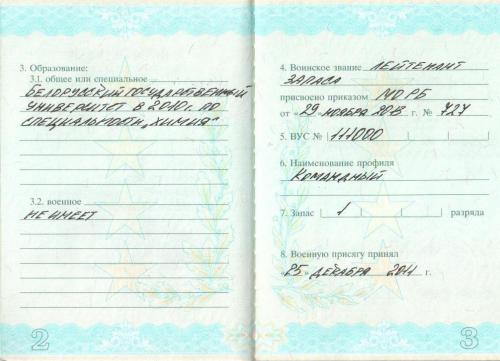 3. Образование:
3.1. общее или специальное
БЕЛОРУССКИЙ ГОСУДАРСТВЕННЫЙ
УНИВЕРСИТЕТ В 2010 г. ПО
СПЕЦИАЛЬНОСТИ „ХИМИЯ“
3.2. военное
НЕ ИМЕЕТ
2
4. Воинское звание ЛЕЙТЕНАНТ
ЗАПАСА
присвоено приказом МО РБ
от «29» НОЯБРЯ 2013 г. № 727
5. ВУС № 111000
6. Наименование профиля
КОМАНДНЫЙ
7. Запас 1 разряда
8. Военную присягу принял
«25» ДЕКАБРЯ 2011 г.
3